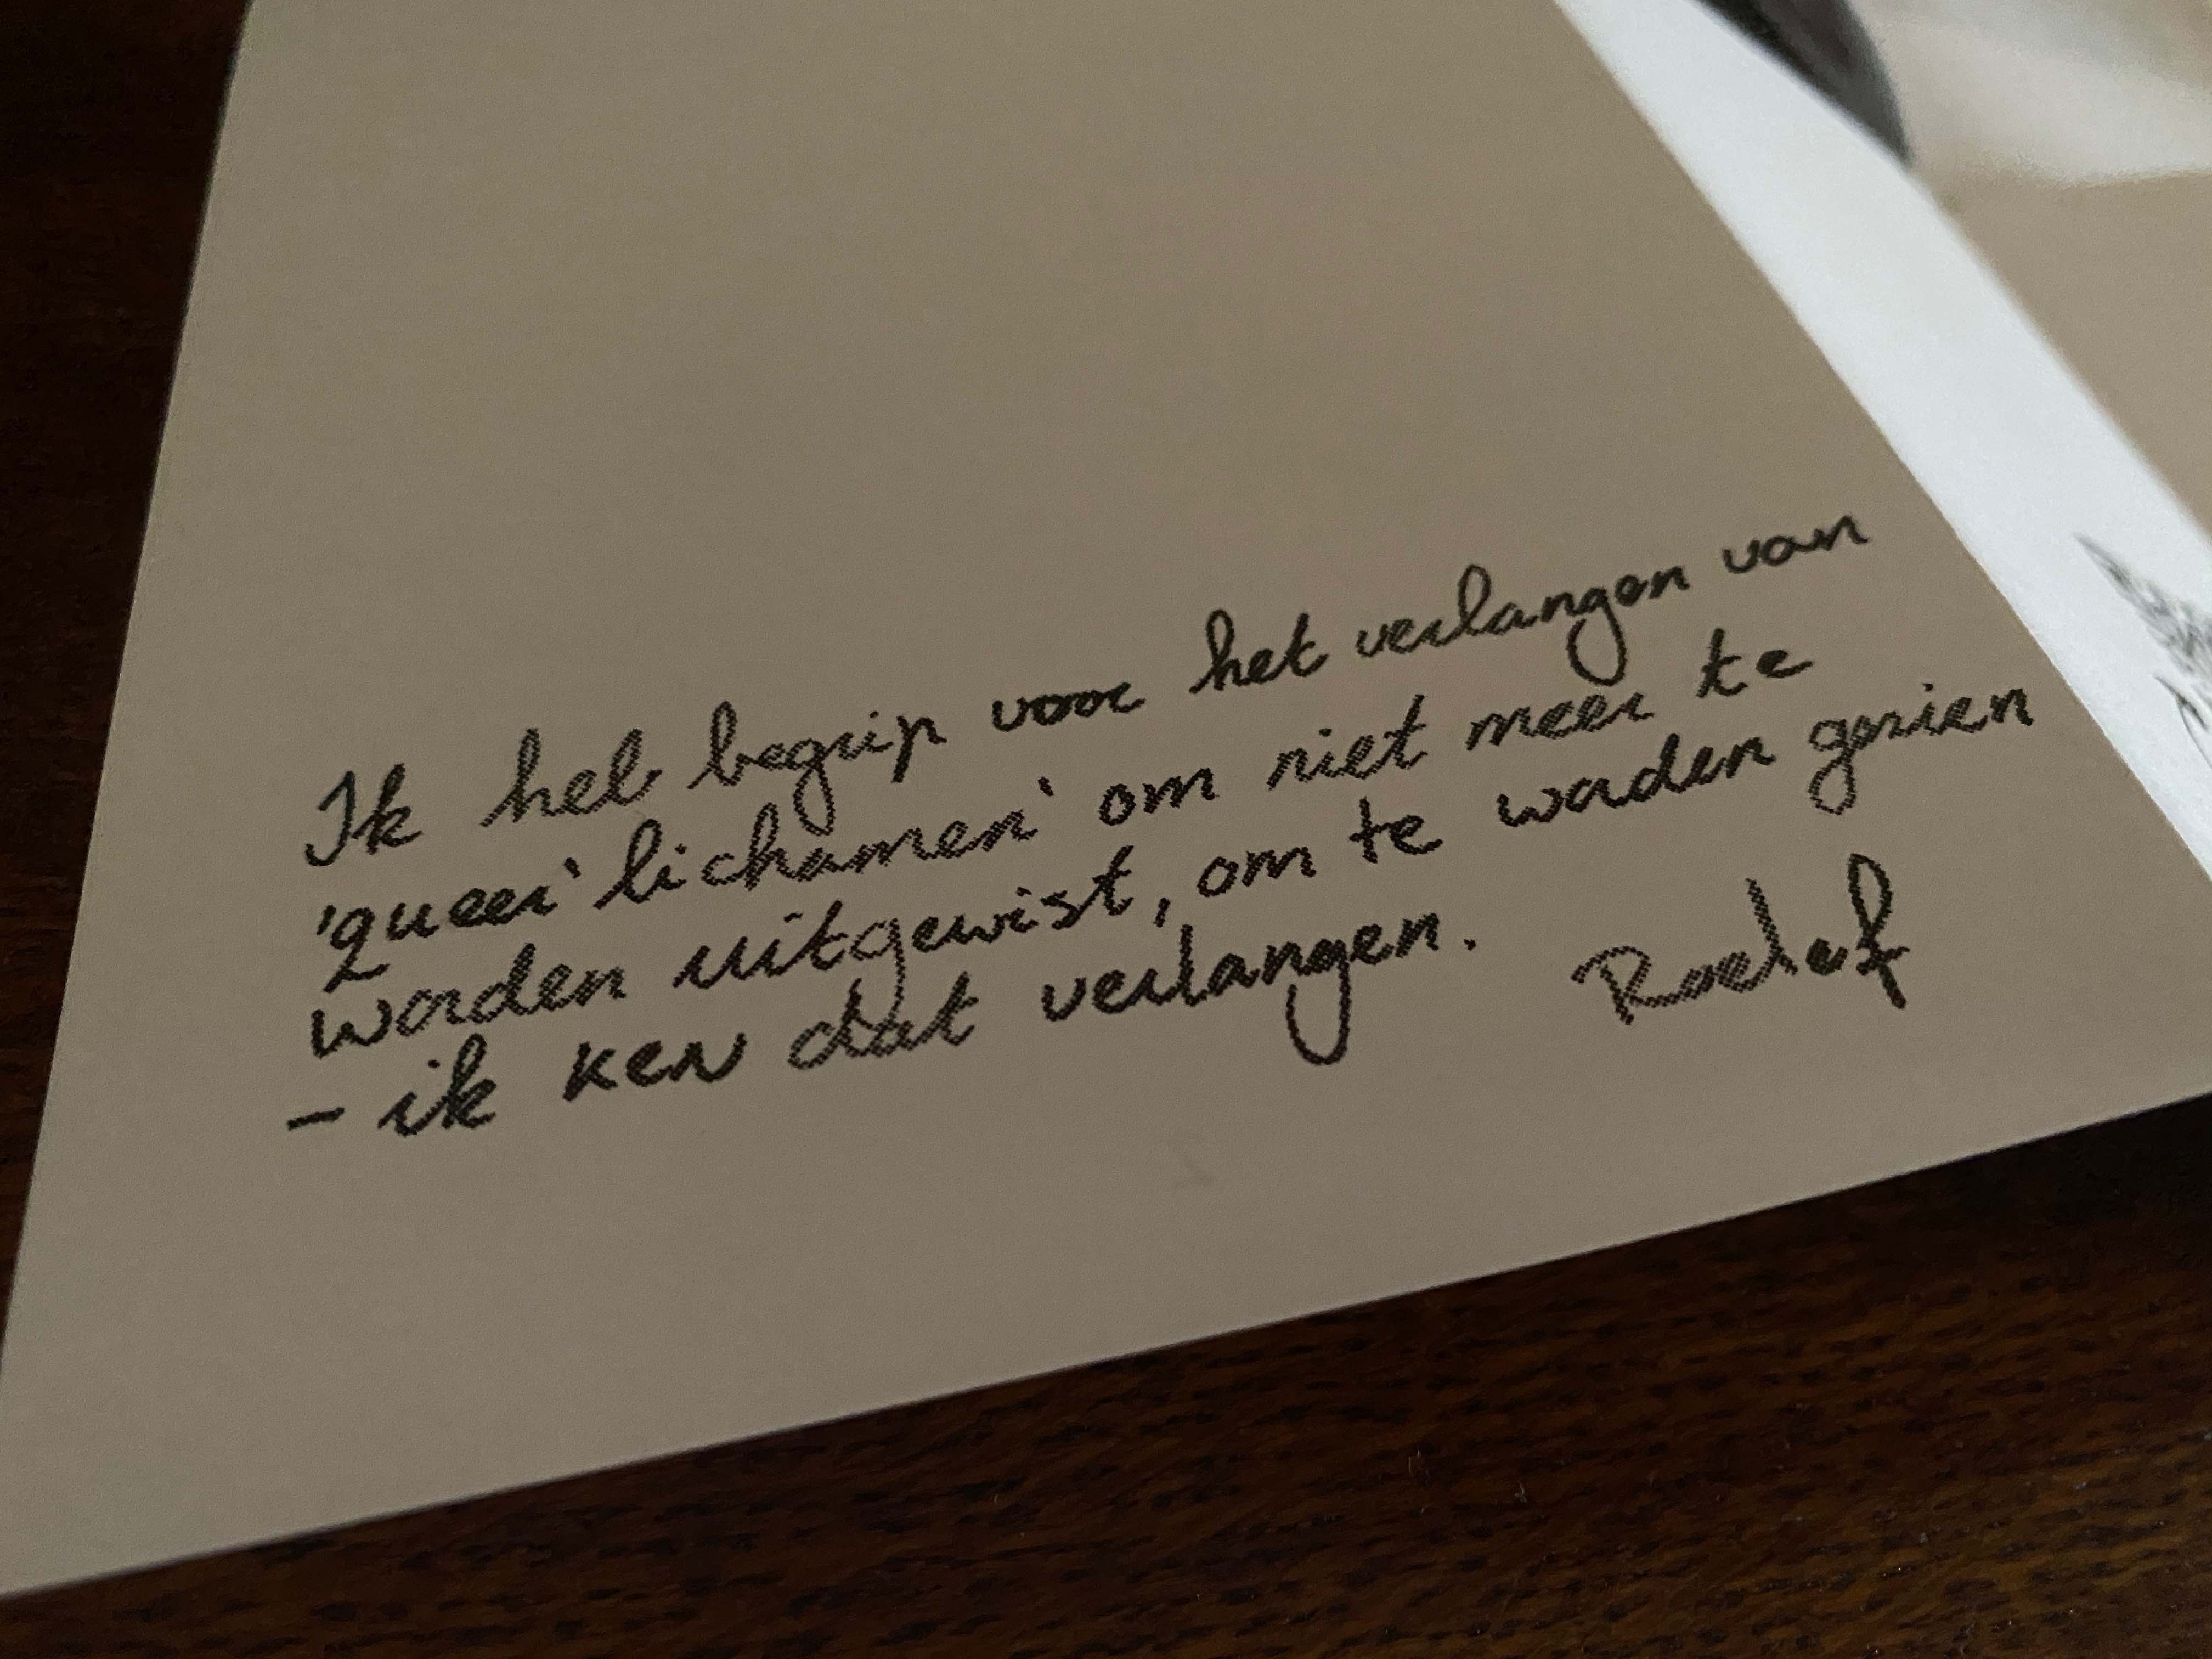 Ik heb begrip voor het verlangen van
'queer' lichamen' om niet meer te
worden uitgewist, om te worden gezien
- ik ken dat verlangen. Roelof